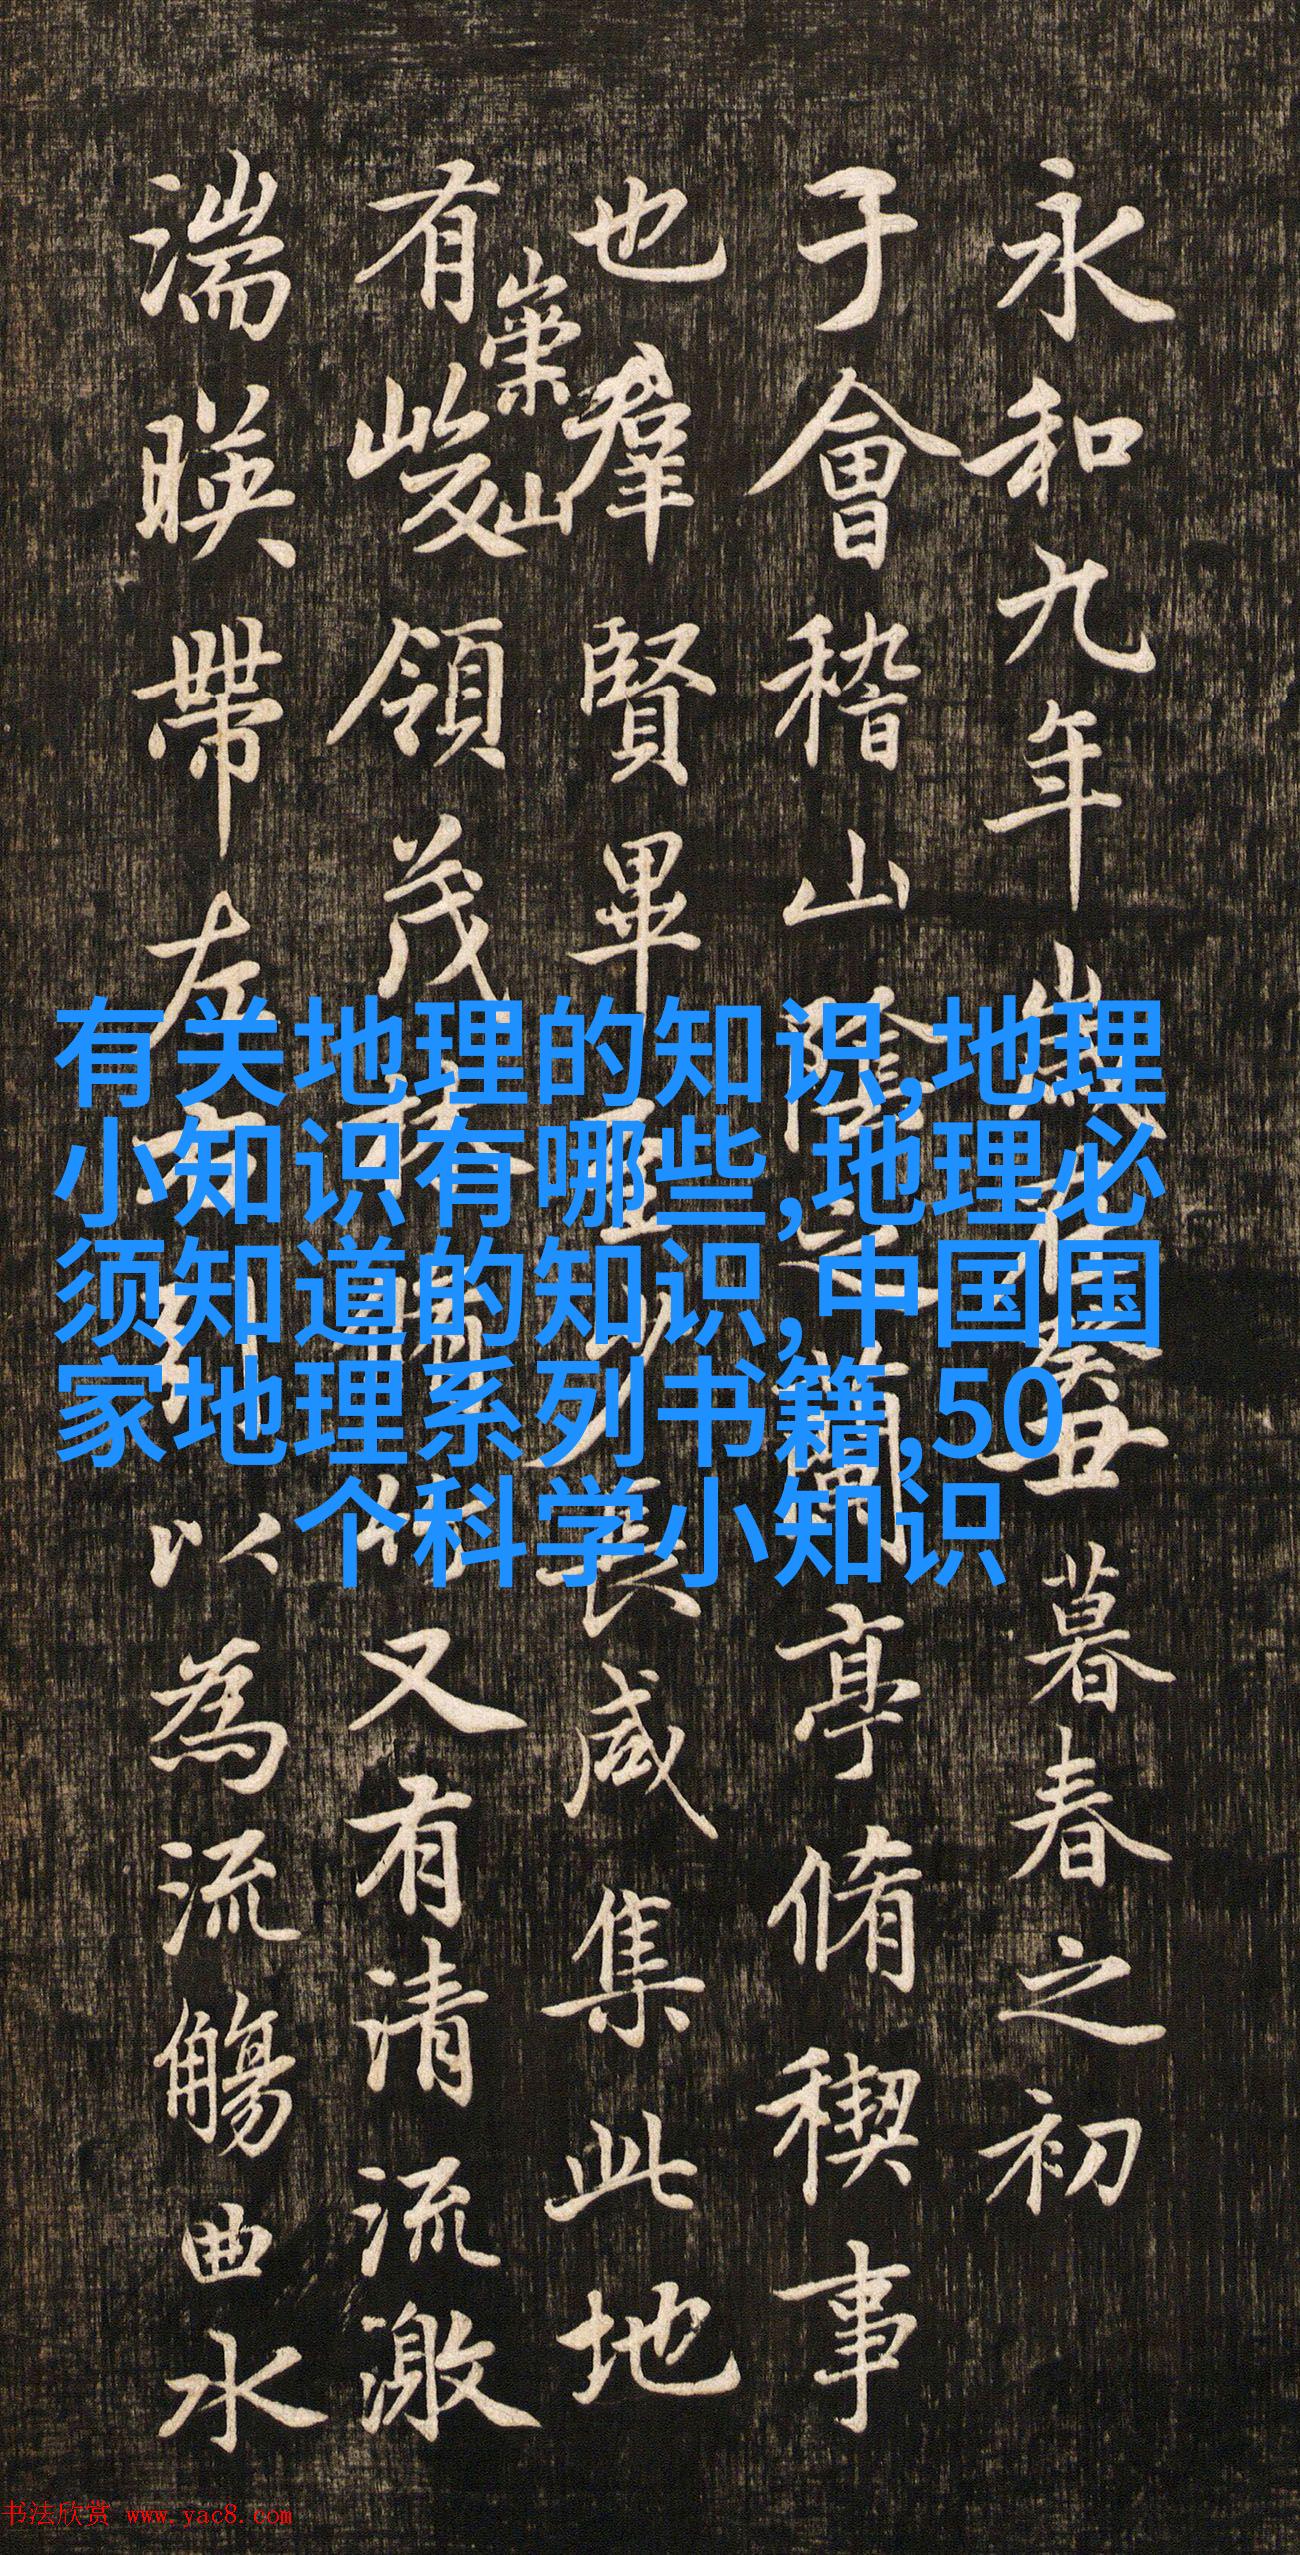 永和九年歲在癸丑暮春之初
于會稽山陰之蘭亭脩稧事
也羣賢畢至少長咸集此地
有崇山峻領茂林脩竹又有清流激
湍暎帶左右引以為流觴曲水
有关地理的知识,地理
小知识有哪些,地理必
须知道的知识,中国国
家地理系列书籍,50
个科学小知识
书法欣赏 www.yac8.com